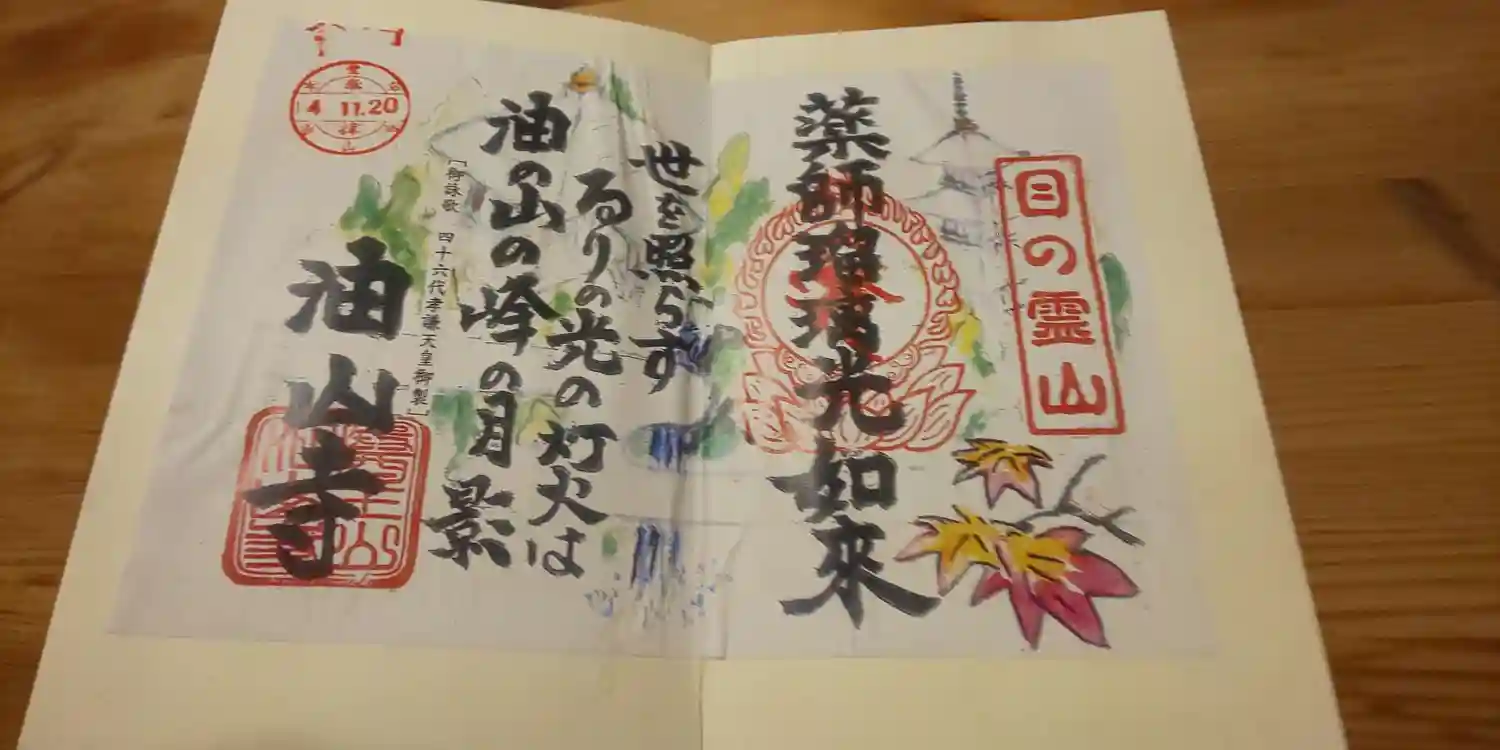 目の霊山
薬師瑠璃光如來
世を照らす
るりの光の灯火は
油の山の峰の月影
[御詠歌 四十六代孝謙天皇御製]
油山寺
4 11.20